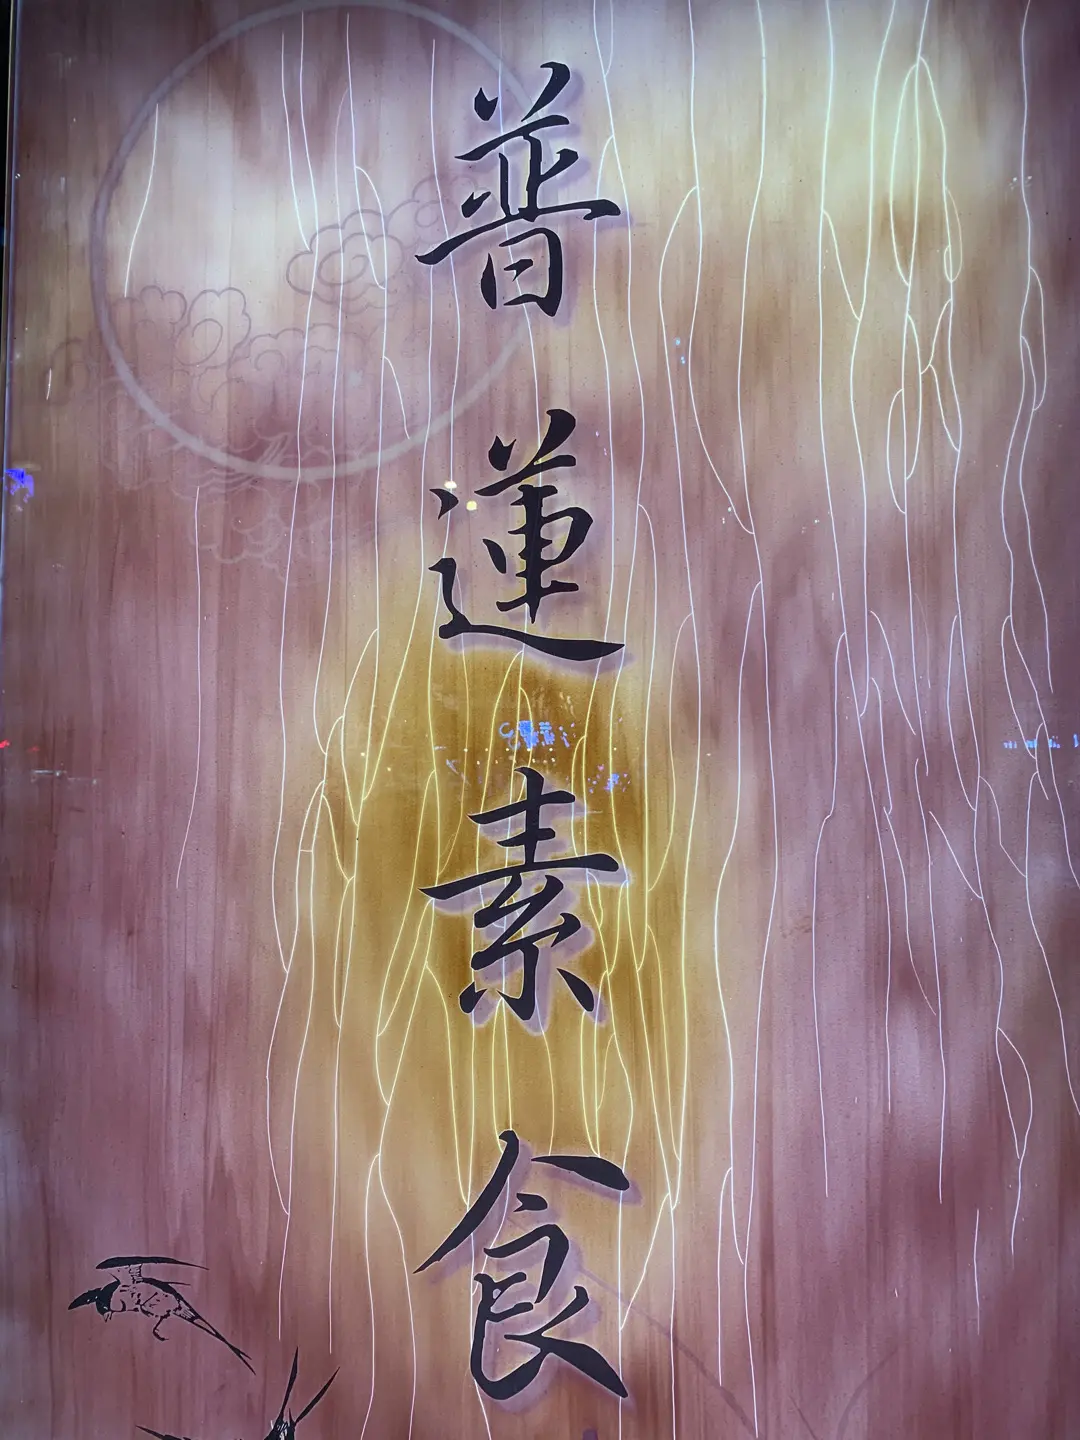 普蓮素食